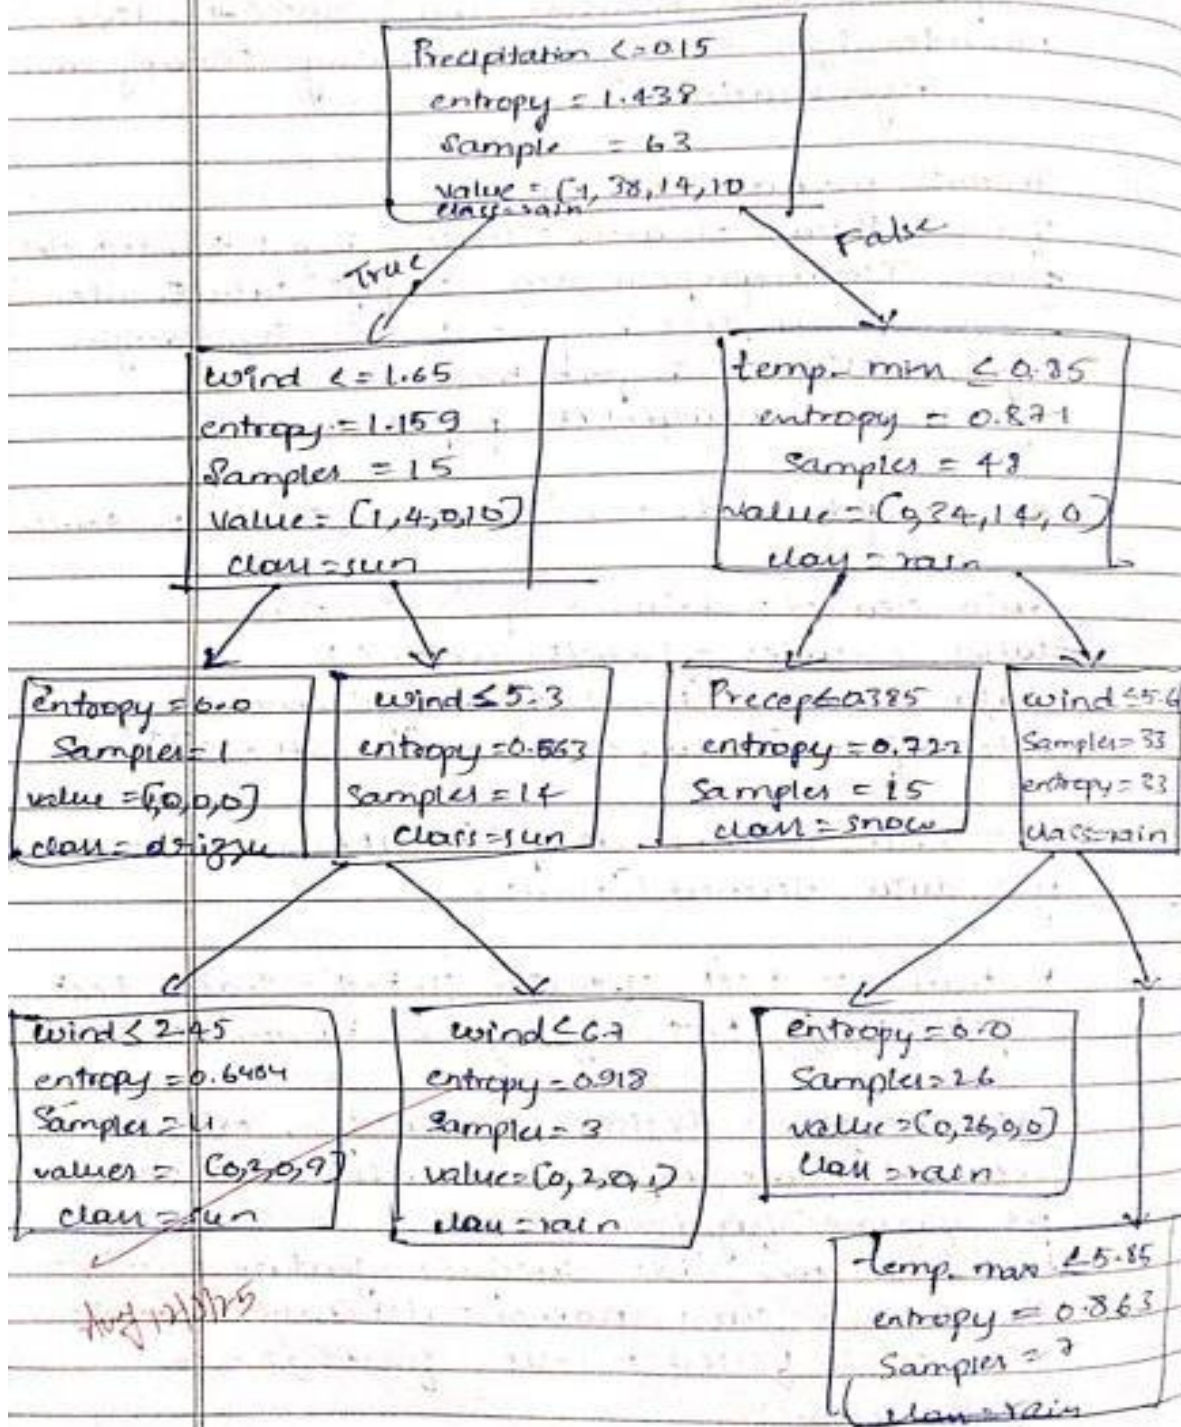 Precipitation <= 0.15
entropy = 1.438
Sample = 63
value = [1, 38, 14, 10
class=rain
True
False
wind <= 1.65
entropy = 1.159
Samples = 15
value = [1, 4, 0, 10]
class = sun
temp. min ≤ 0.85
entropy = 0.871
Samples = 48
value = [0, 34, 14, 0]
class = rain
entropy = 0.0
Samples = 1
value = [1, 0, 0, 0]
class =
wind ≤ 5.3
entropy = 0.863
Samples = 14
class = sun
Precep ≤ 0.385
entropy = 0.722
Samples = 15
class = snow
wind ≤ 5.6
Samples = 33
entropy = 23
class=rain
wind ≤ 2.45
entropy = 0.6404
Samples = 11
values = [0, 2, 0, 9]
class = sun
wind ≤ 6.7
entropy = 0.918
Samples = 3
value = [0, 2, 0, 1]
class = rain
entropy = 0.0
Samples = 26
value = [0, 26, 0, 0]
class = rain
temp. max ≤ 5.85
entropy = 0.863
Samples = 7
class = rain